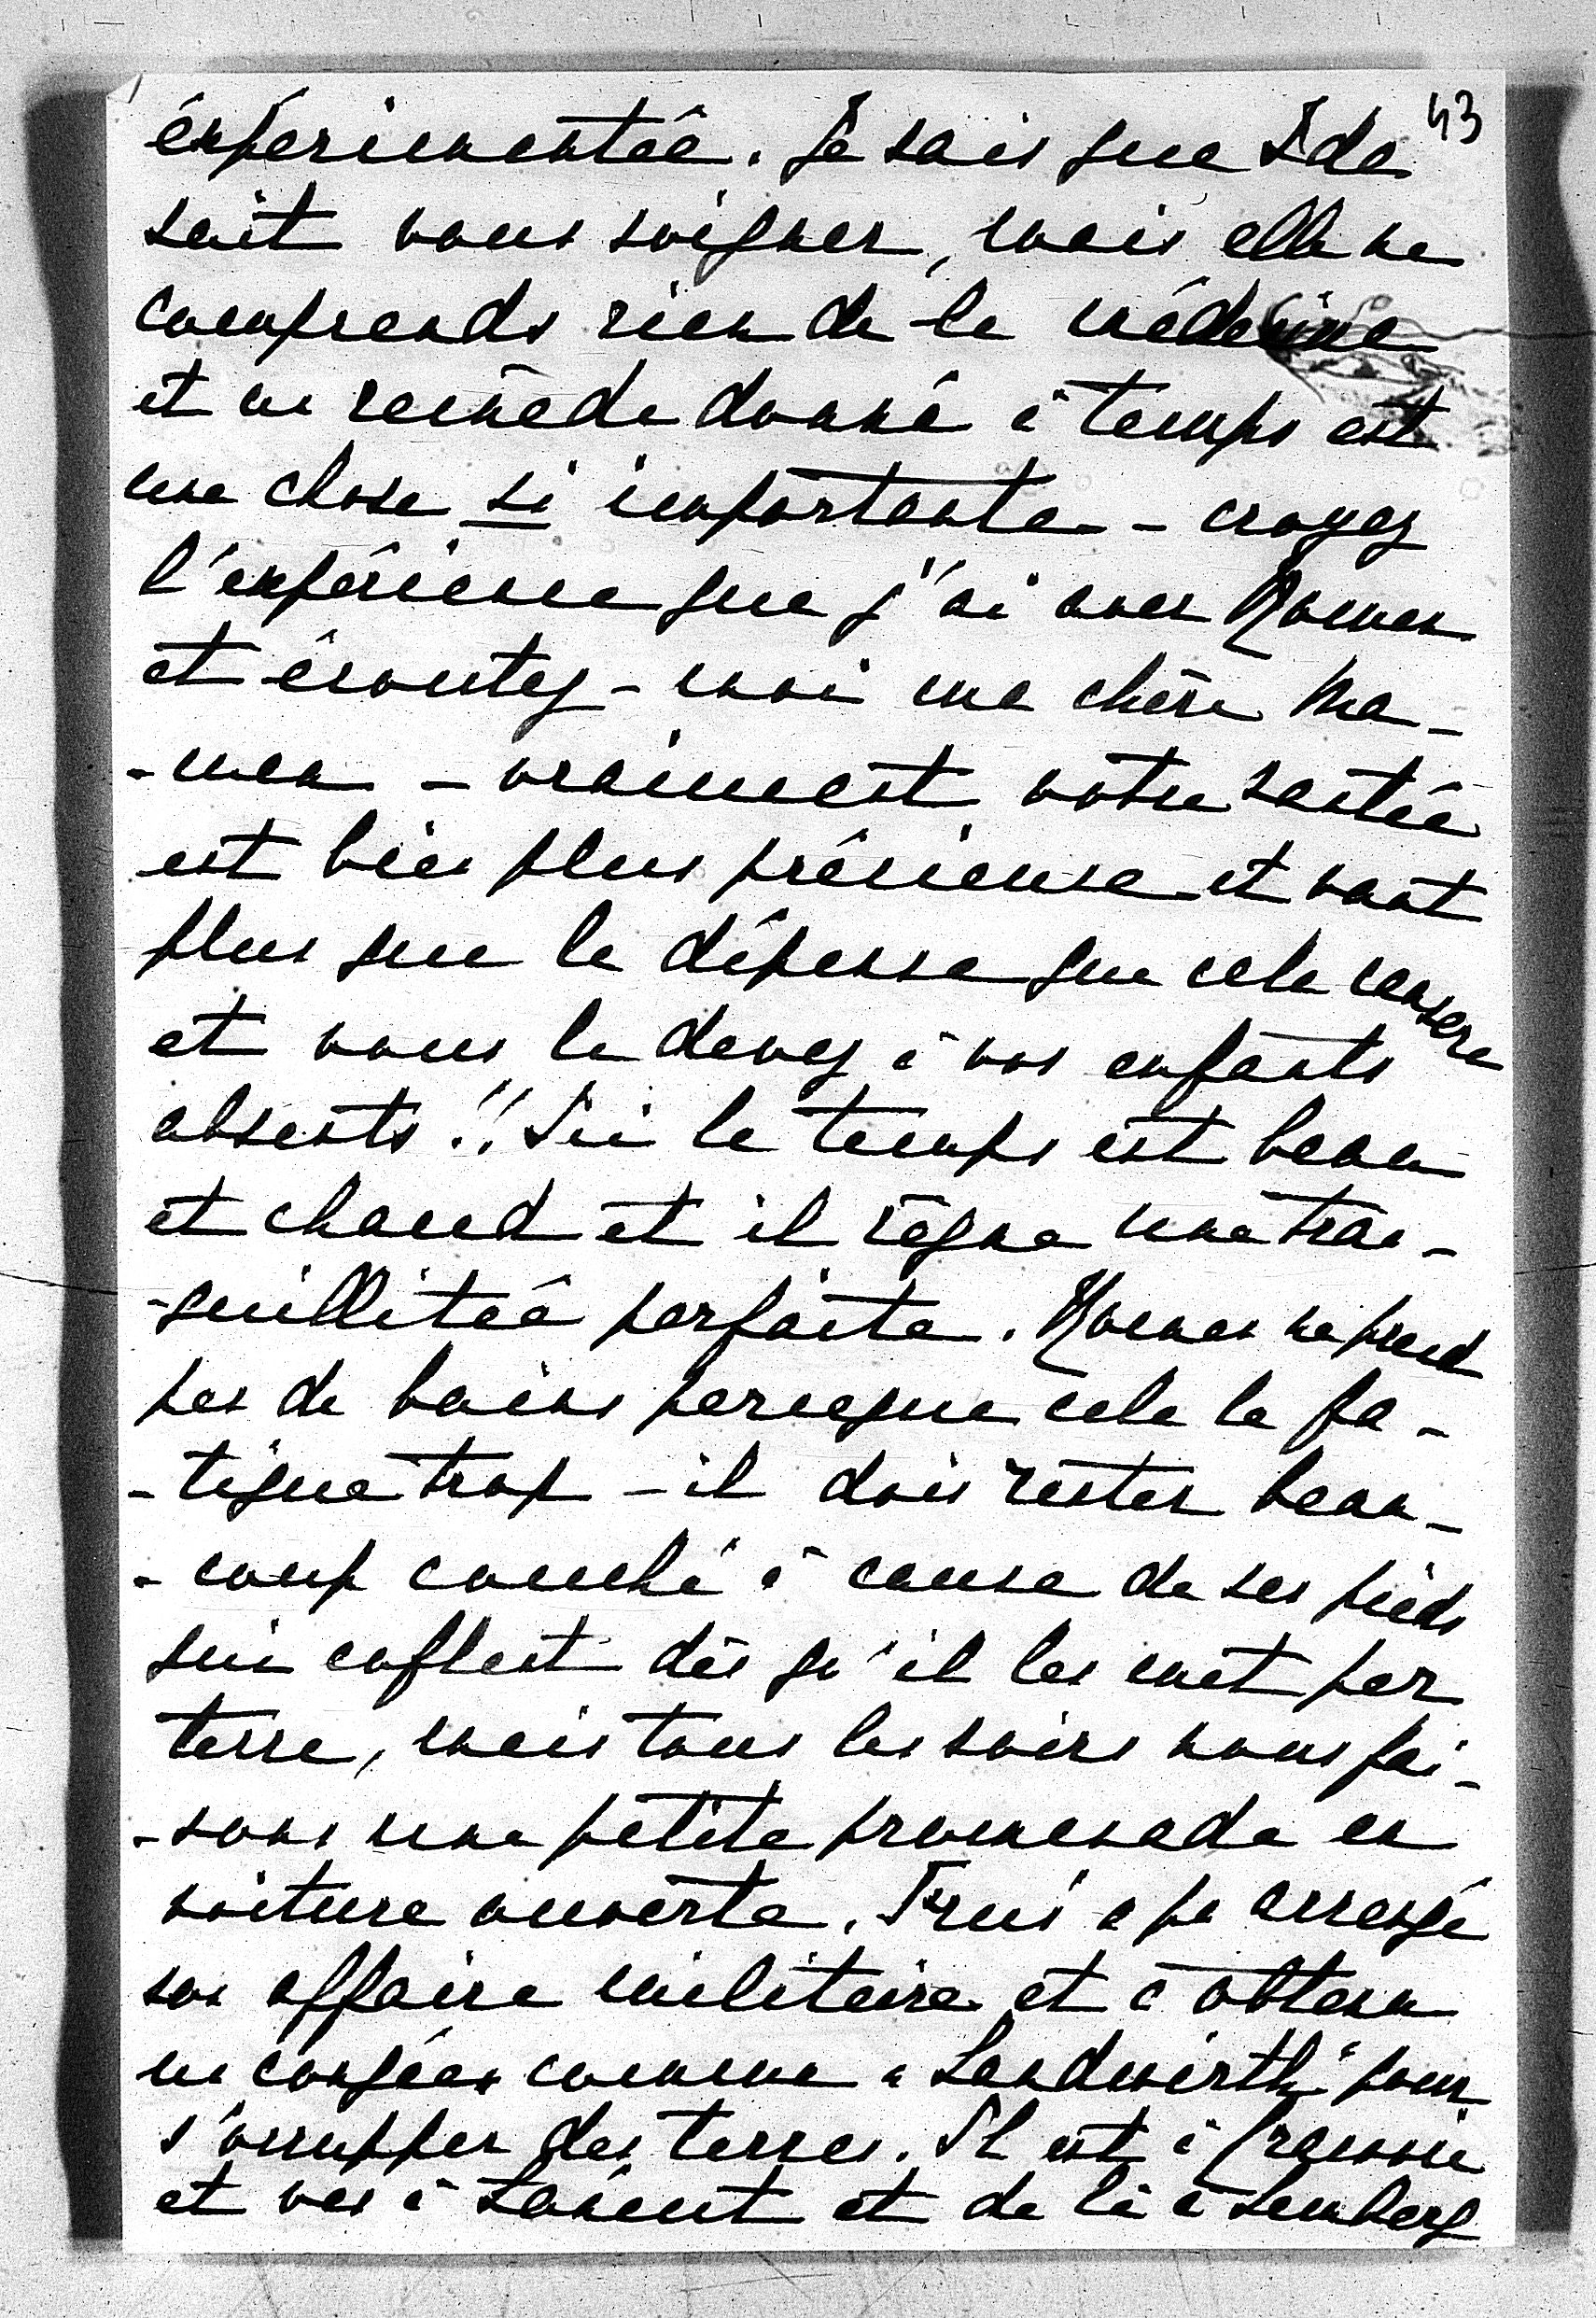 43
éxperimentée. Je sais que Ida
sait vous soigner, mais elle ne
comprends rien de la médecine
et un remède donné à temps est
une chose si importante - croyez
l'expérience que j'ai avec Roman
et écoutez-moi ma chère Ma-
-man - vraiment votre santée
est bien plus précieuse et vaut
plus que la dépense que cela causera
et vous le devez à vos enfants
absents!! Ici le temps est beau
et chaud et il règne une tran-
-quillitée parfaite. Roman ne prend
pas de bains parceque cela le fa-
-tigue trop - il dois rester beau-
-coup couché à cause de ses pieds
qui enflent dès qu'il les met par
terre, mais tous les soirs nous fai-
-sons une petite promenade en
voiture ouverte. a pu arrangé
son affaire militaire et à obtenu
un congéex comme "Landwirth" pour
s'occupper des terres. Il est à Cracovie
et vas à Łańcut et de là à Lemberg